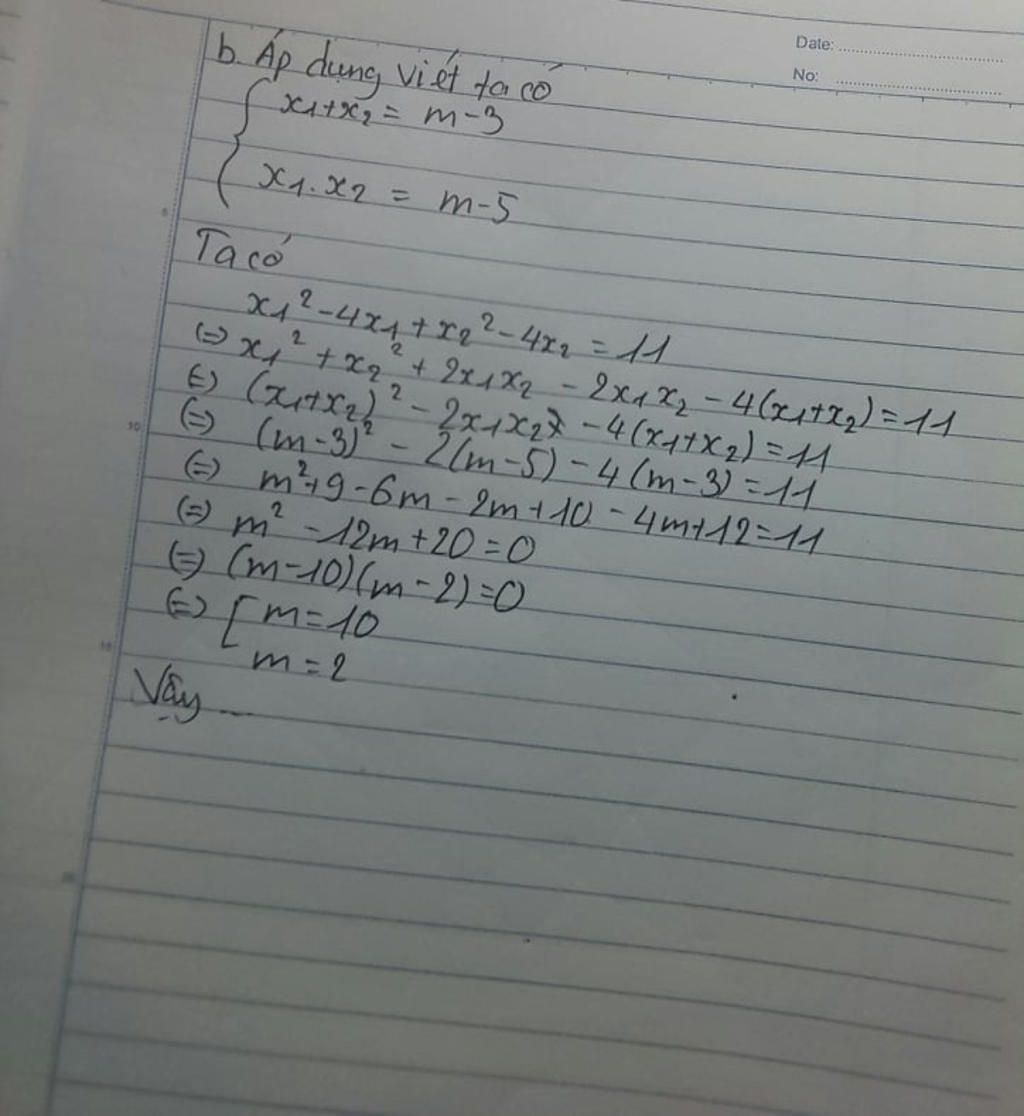 Date:
No:
b. Áp dụng viét ta có
{ x₁+x₂ = m-3
x₁.x₂ = m-5
Ta có
x₁² -4x₁ + x₂² - 4x₂ = 11
(=) x₁² + x₂² + 2x₁x₂ - 2x₁x₂ - 4(x₁+x₂) = 11
(=) (x₁+x₂)² - 2x₁x₂ - 4(x₁+x₂) = 11
(=) (m-3)² - 2(m-5) - 4(m-3) = 11
(=) m²+9-6m-2m+10-4m+12=11
(=) m² -12m+20=0
(=) (m-10)(m-2)=0
(=) [ m=10
m=2
Vậy ...
5
10
15
20